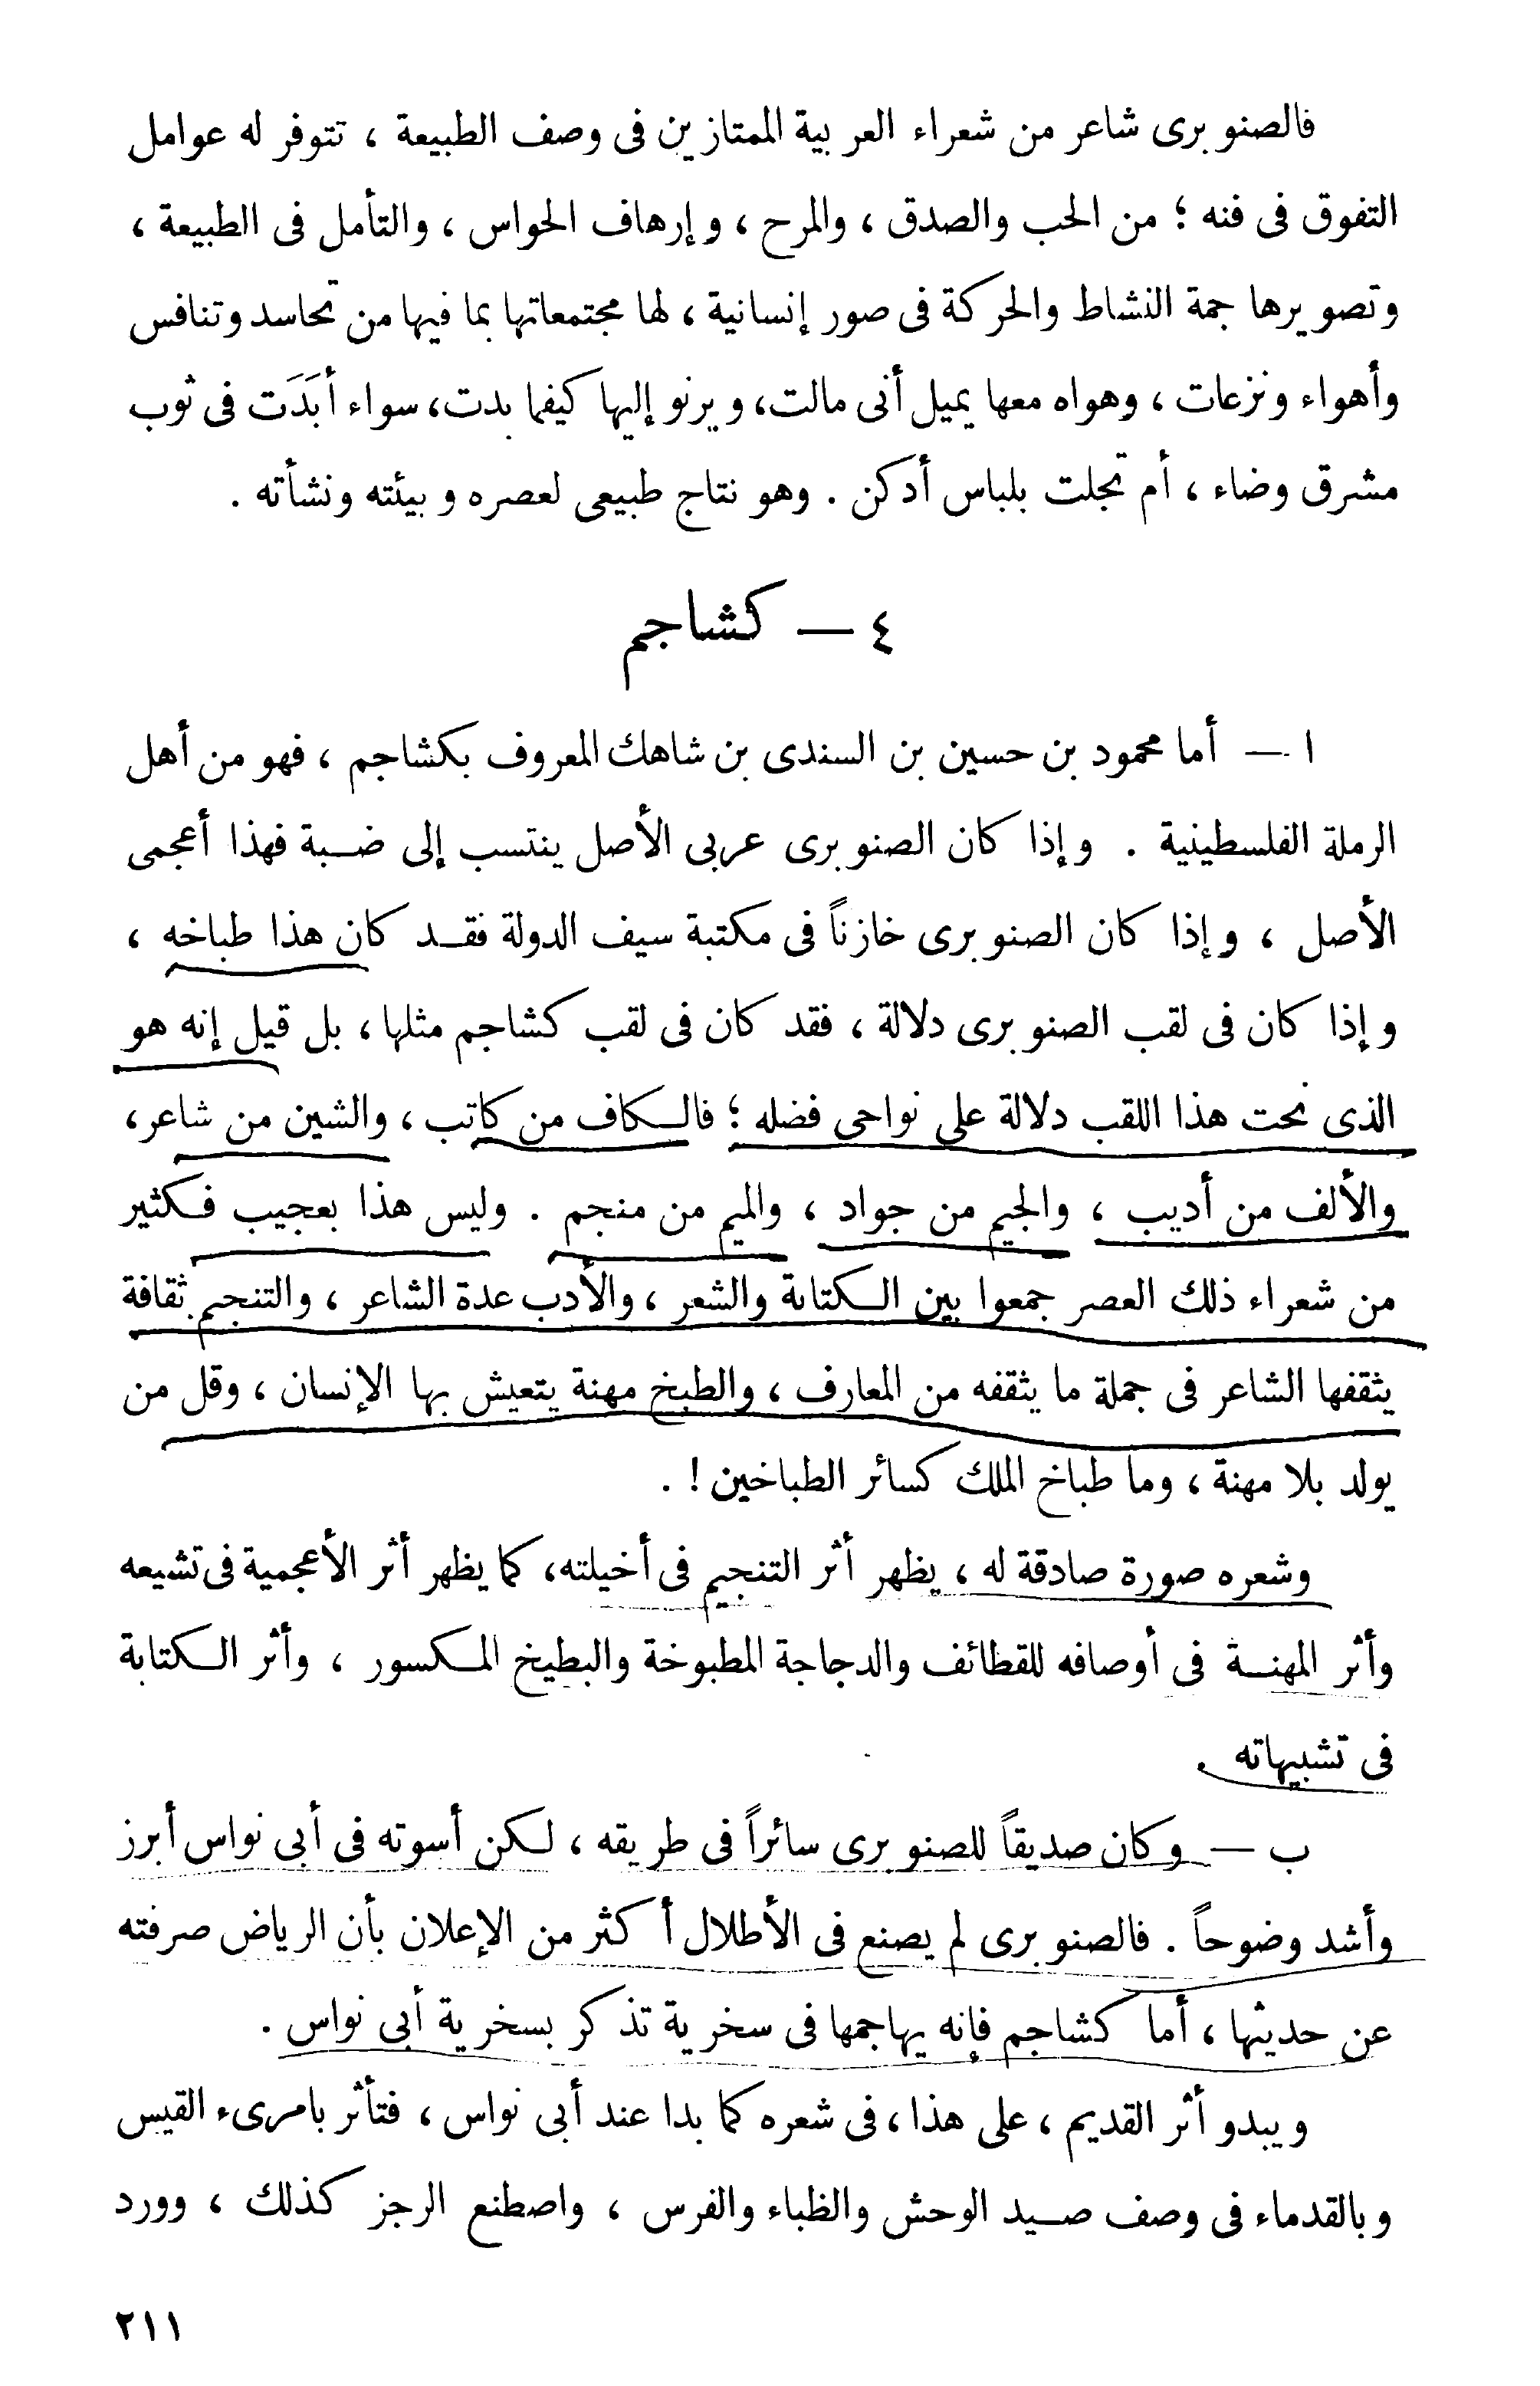 فالصنوبرى شاعر من شعراء العربية الممتازين فى وصف الطبيعة ، تتوفر له عوامل
التفوق فى فنه ؛ من الحب والصدق ، والمرح ، وإرهاف الحواس ، والتأمل فى الطبيعة ،
وتصويرها جمة النشاط والحركة فى صور إنسانية ، لها مجتمعاتها بما فيها من تحاسد وتنافس
وأهواء ونزعات ، وهواه معها يميل أنى مالت، ويرنو إليها كيفما بدت، سواء أبَدَت فى ثوب
مشرق وضاء ، أم تجلت بلباس أدكن . وهو نتاج طبيعى لعصره وبيئته ونشأته .
٤ — كشاجم
ا — أما محمود بن حسين بن السندى بن شاهك المعروف بكشاجم ، فهو من أهل
الرملة الفلسطينية . وإذا كان الصنوبرى عربى الأصل ينتسب إلى ضبة فهذا أعجمى
الأصل ، وإذا كان الصنوبرى خازناً فى مكتبة سيف الدولة فقد كان هذا طباخه ،
وإذا كان فى لقب الصنوبرى دلالة ، فقد كان فى لقب كشاجم مثلها ، بل قيل إنه هو
الذى نحت هذا اللقب دلالة على نواحى فضله ؛ فالكاف من كاتب ، والشين من شاعر،
والألف من أديب ، والجيم من جواد ، والميم من منجم . وليس هذا بعجيب فكثير
من شعراء ذلك العصر جمعوا بين الكتابة والشعر ، والأدب عدة الشاعر ، والتنجيم ثقافة
يثقفها الشاعر فى جملة ما يثقفه من المعارف ، والطبخ مهنة يتعيش بها الإنسان ، وقل من
يولد بلا مهنة ، وما طباخ الملك كسائر الطباخين ! .
وشعره صورة صادقة له ، يظهر أثر التنجيم فى أخيلته، كما يظهر أثر الأعجمية فى تشيعه
وأثر المهنة فى أوصافه للقطائف والدجاجة المطبوخة والبطيخ المكسور ، وأثر الكتابة
فى تشبيهاته .
ب — وكان صديقاً للصنوبرى سائراً فى طريقه ، لكن أسوته فى أبى نواس أبرز
وأشد وضوحاً . فالصنوبرى لم يصنع فى الأطلال أكثر من الإعلان بأن الرياض صرفته
عن حديثها ، أما كشاجم فإنه يهاجمها فى سخرية تذكر بسخرية أبى نواس .
ويبدو أثر القديم ، على هذا ، فى شعره كما بدا عند أبى نواس ، فتأثر بامرىء القيس
وبالقدماء فى وصف صيد الوحش والظباء والفرس ، واصطنع الرجز كذلك ، وورد
٢١١